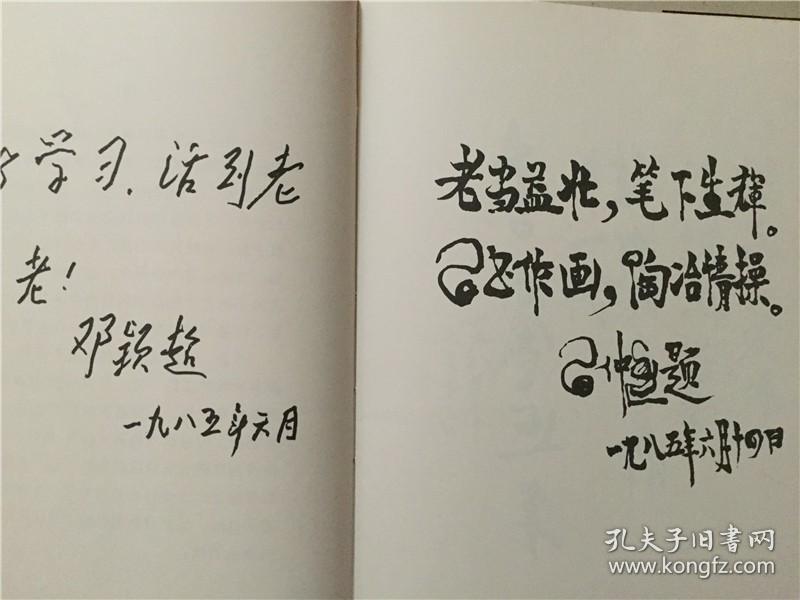 学习、活到老
老！
邓颖超
一九八五年六月
老当益壮，笔下生輝。
书作画，陶冶情操。
仲题
一九八五年六月十四日
孔夫子旧书网
www.kongfz.com